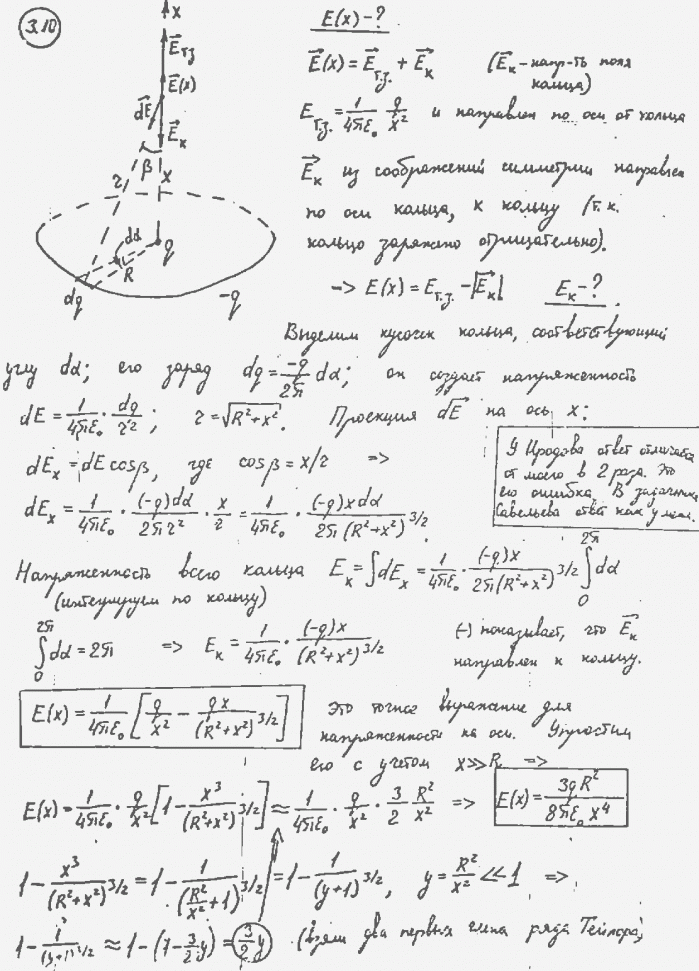 3.10
E(x) - ?
x
E⃗т.з.
E⃗(x)
dE⃗
E⃗к
β
r
x
dα
R
q
dq
-q
E⃗(x) = E⃗т.з. + E⃗к (E⃗к - напр-ть поля
кольца)
Eт.з. = 1/(4πε₀) q/x² и направлен по оси от кольца
E⃗к из соображений симметрии направлен
по оси кольца, к кольцу (т.к.
кольцо заряжено отрицательно).
-> E(x) = Eт.з. - |E⃗к| Eк - ?
Выделим кусочек кольца, соответствующий
углу dα; его заряд dq = -q/2π dα; он создает напряженность
dE = 1/(4πε₀) · dq/r²; r = √(R²+x²). Проекция dE⃗ на ось x:
dEx = dE cosβ, где cosβ = x/r =>
dEx = 1/(4πε₀) · (-q)dα/(2πr²) · x/r = 1/(4πε₀) · (-q)x dα/(2π(R²+x²)^(3/2)).
У Иродова ответ отличается
от моего в 2 раза. Это
его ошибка. В задачнике
Савельева ответ как у меня.
Напряженность всего кольца Eк = ∫dEx = 1/(4πε₀) · (-q)x/(2π(R²+x²)^(3/2)) ∫₀^2π dα
(интегрируем по кольцу)
∫₀^2π dα = 2π => Eк = 1/(4πε₀) · (-q)x/(R²+x²)^(3/2) (-) показывает, что E⃗к
направлен к кольцу.
E(x) = 1/(4πε₀) [q/x² - qx/(R²+x²)^(3/2)] Это точное выражение для
напряженности на оси. Упростим
его с учетом x≫R =>
E(x) = 1/(4πε₀) · q/x² [1 - x³/(R²+x²)^(3/2)] ≈ 1/(4πε₀) · q/x² · 3/2 R²/x² => E(x) = 3qR²/(8πε₀x⁴)
1 - x³/(R²+x²)^(3/2) = 1 - 1/(R²/x²+1)^(3/2) = 1 - 1/(y+1)^(3/2), y = R²/x² ≪ 1 =>
1 - 1/(y+1)^(3/2) ≈ 1 - (1 - 3/2 y) = 3/2 y (взяли два первых члена ряда Тейлора)